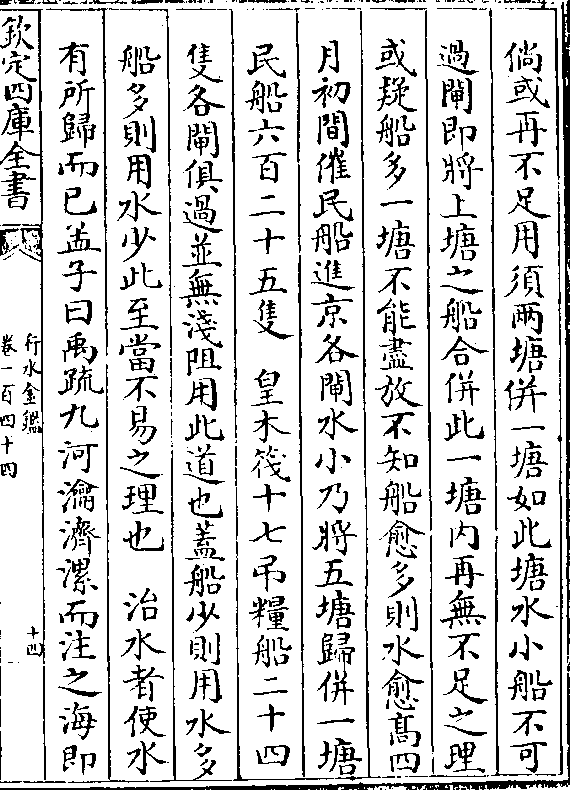 倘或再不足用須兩塘併一塘如此塘水小船不可
過閘即將上塘之船合併此一塘内再無不足之理
或疑船多一塘不能盡放不知船愈多則水愈髙四
月初間催民船進京各閘水小乃將五塘歸併一塘
民船六百二十五隻　皇木筏十七吊糧船二十四
隻各閘俱過並無淺阻用此道也蓋船少則用水多
船多則用水少此至當不易之理也　治水者使水
有所歸而已孟子曰禹疏九河瀹濟漯而注之海即
欽定四庫全書
行水金鑑
卷一百四十四
十四